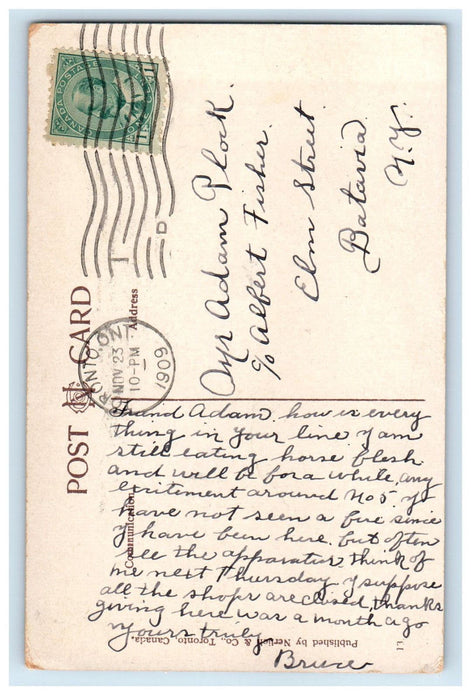 CANADA POSTAGE
POST CARD
Address
TORONTO, ONT.
NOV 23
10-PM
1909
D
Adam Plock.
c/o Albert Fisher.
Elm Street
Batavia
N.Y.
Communication
Friend Adam. how is every
thing in your line I am
still eating horse flesh
and will be for a while, any
exitement around No 5. I
have not seen a fire since
I have been here. but often
see the apparatus think of
me next Thursday I suppose
all the shops are closed, thanks
giving here was a month ago
Yours truly
Bruce
Published by Nerlich & Co., Toronto, Canada.
13